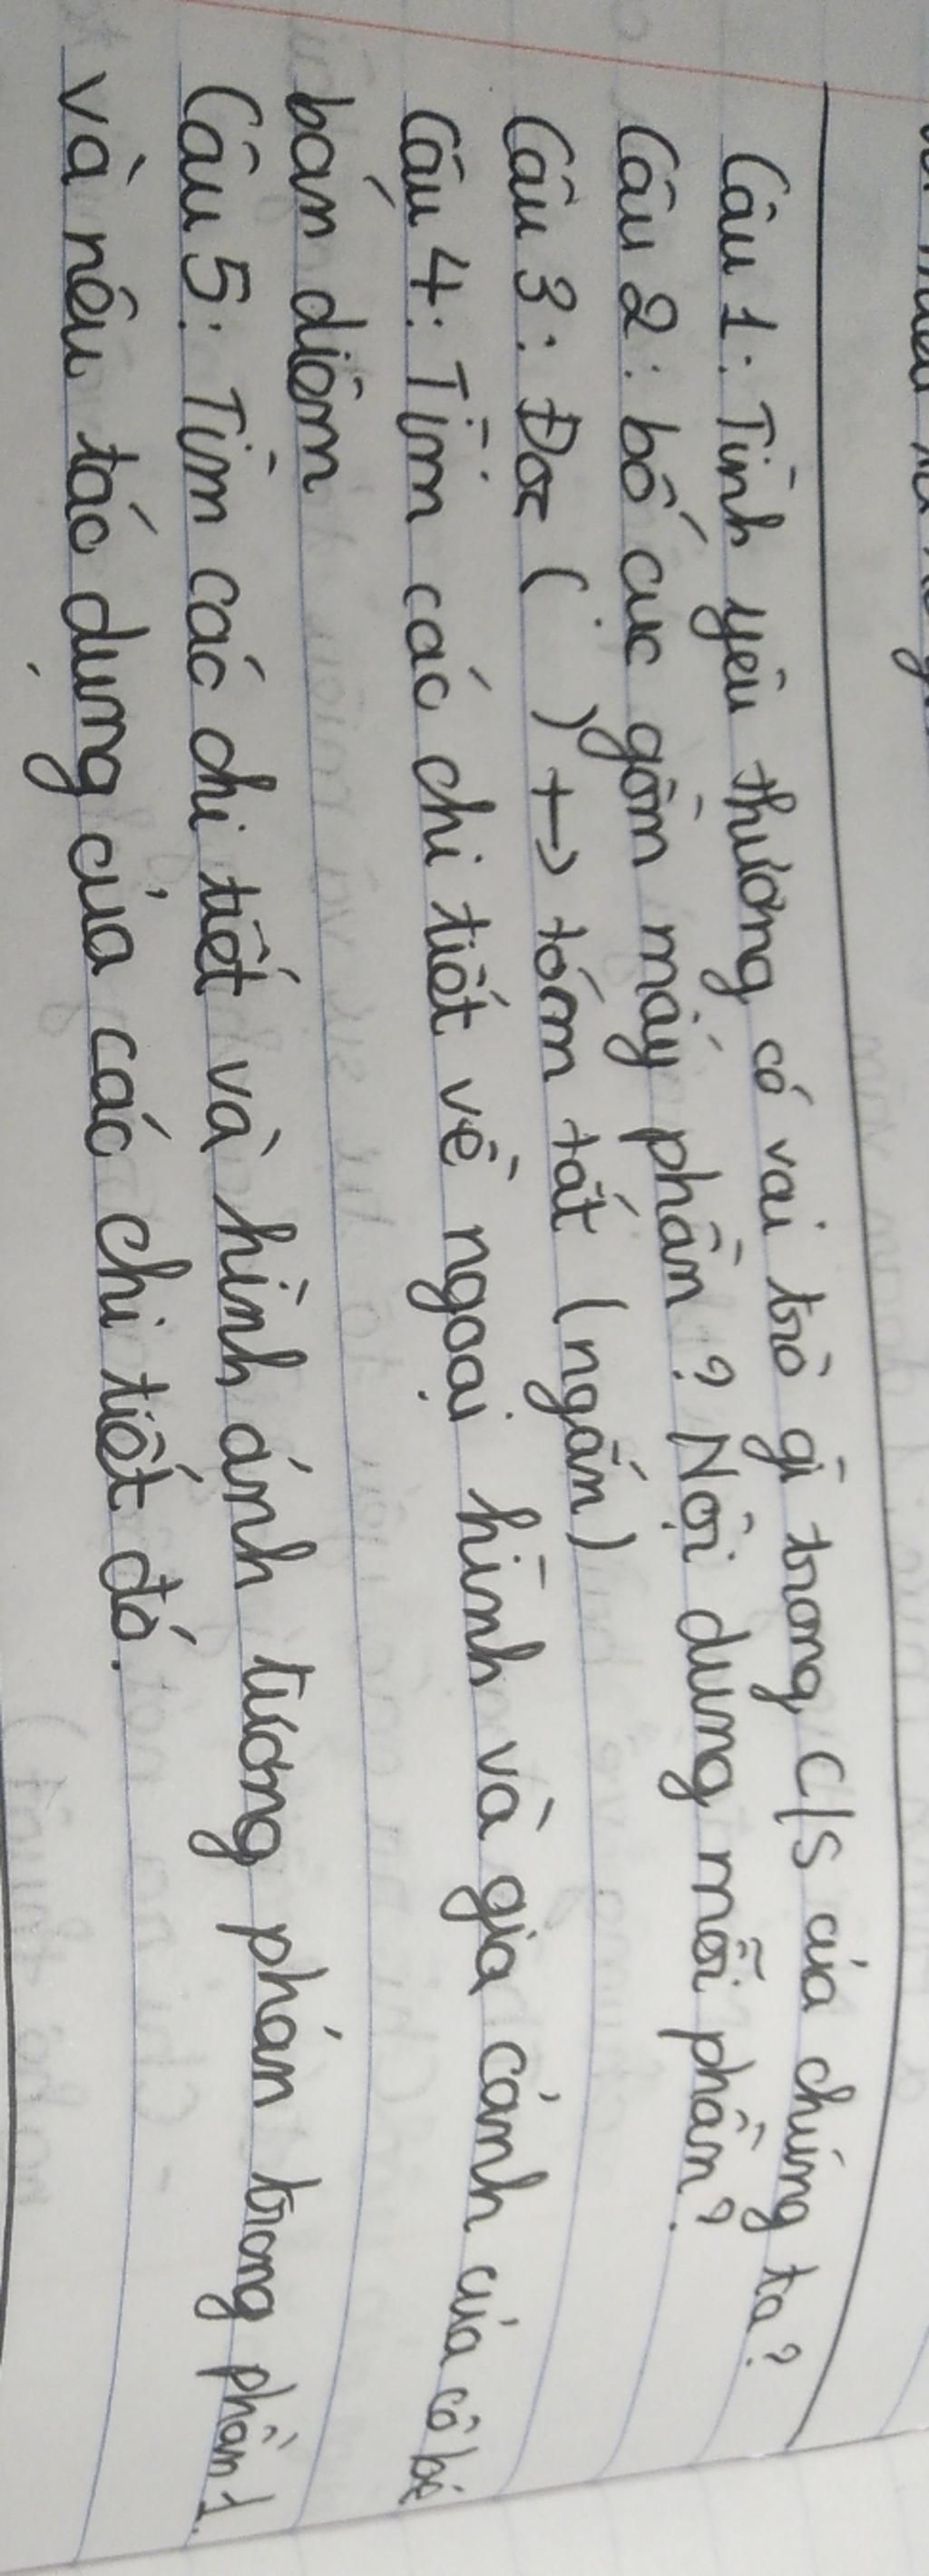 Câu 1: Tình yêu thương có vai trò gì trong c/s của chúng ta?
Câu 2: bố cục gồm mấy phần? Nội dung mỗi phần?
Câu 3: Đọc ( ) + → tóm tắt (ngắn)
Câu 4: Tìm các chi tiết về ngoại hình và gia cảnh của cô bé
bán diêm
Câu 5: Tìm các chi tiết và hình ảnh tương phản trong phần 1.
và nêu tác dụng của các chi tiết đó.